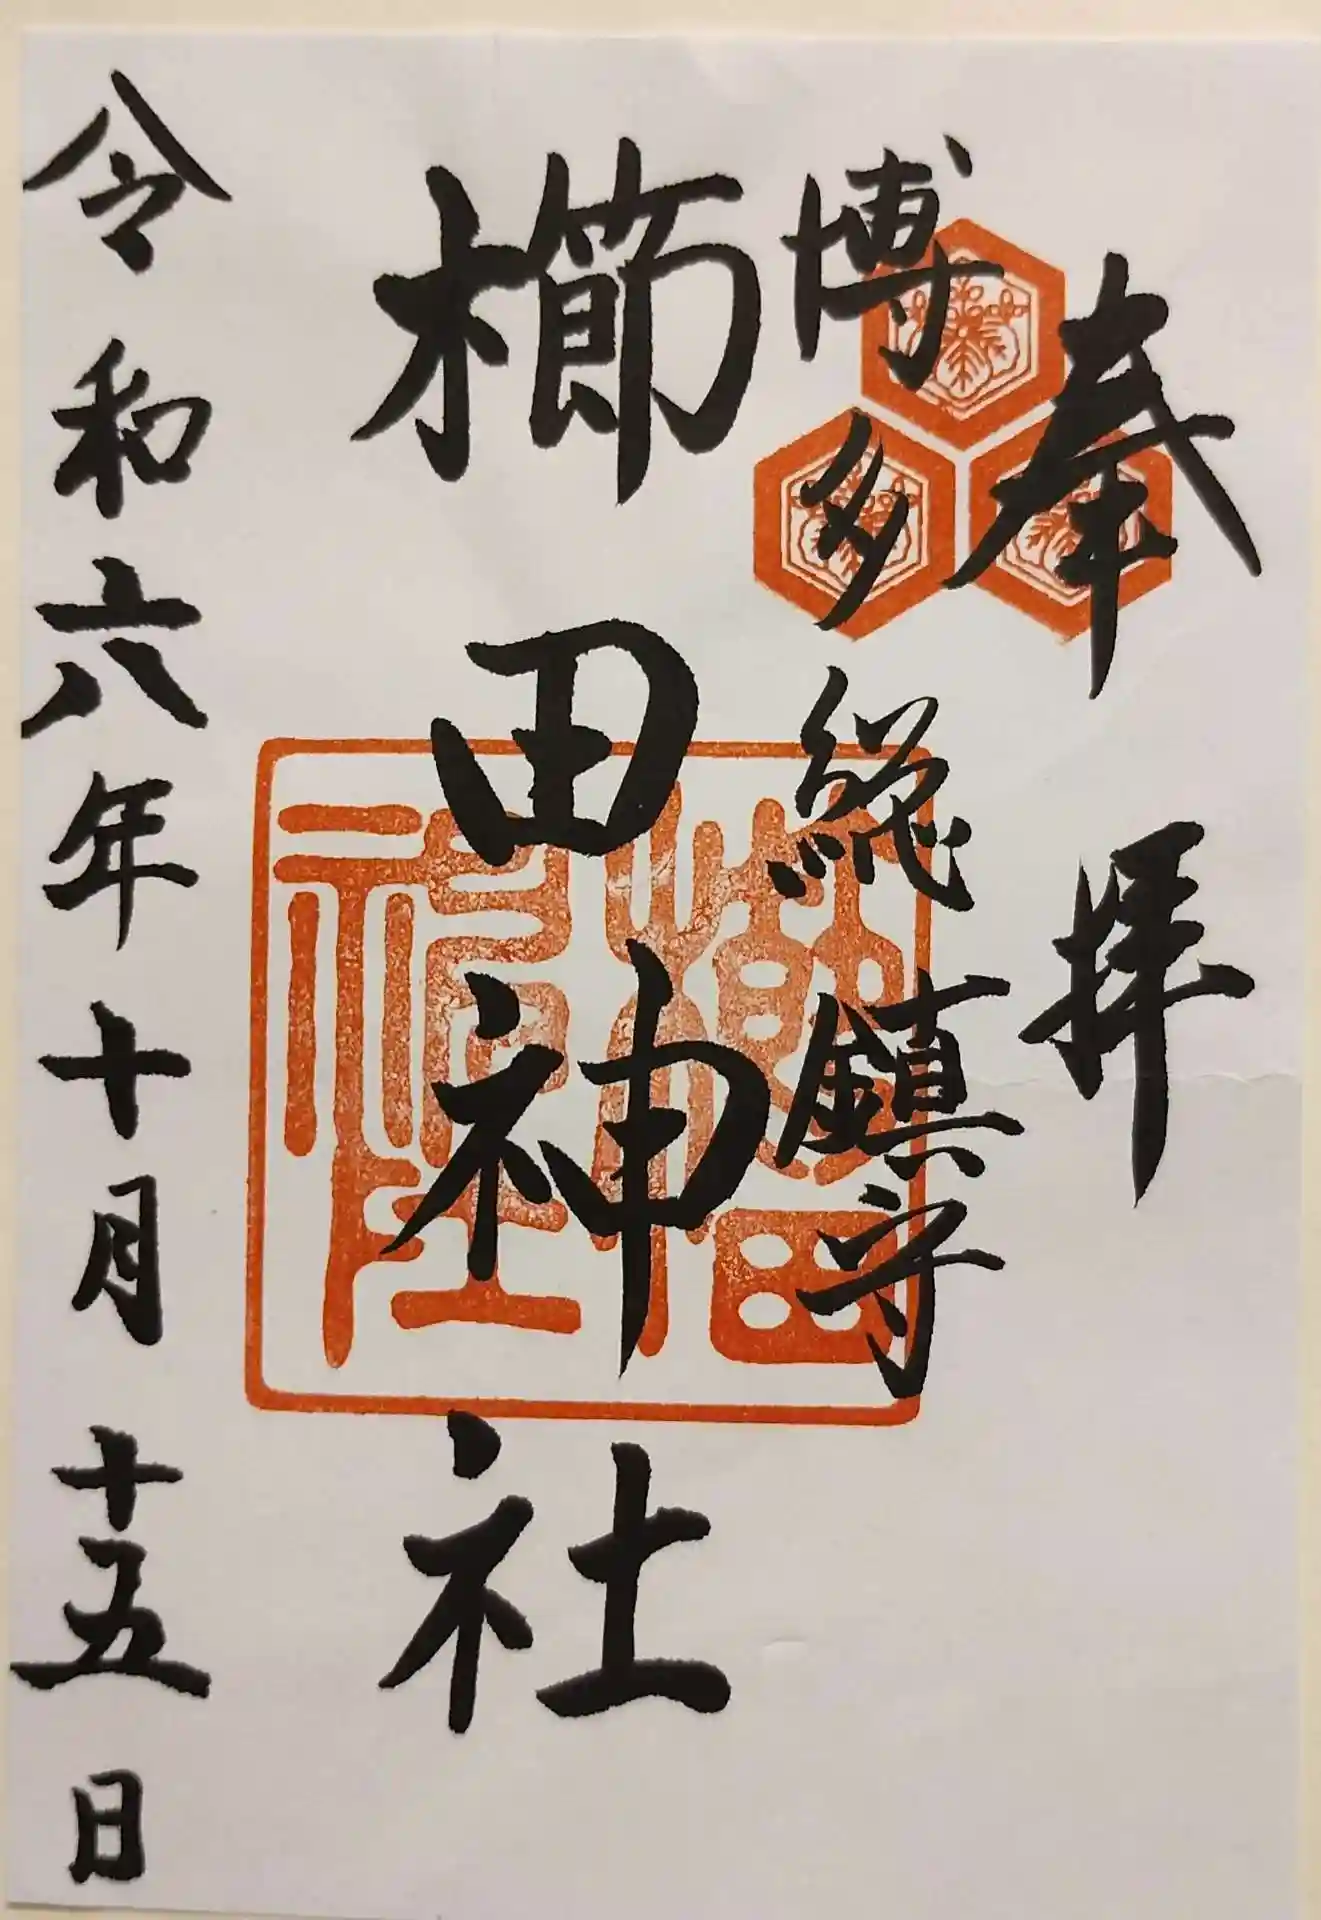 奉拝
博多総鎮守
櫛田神社
櫛田神社
令和六年十月十五日